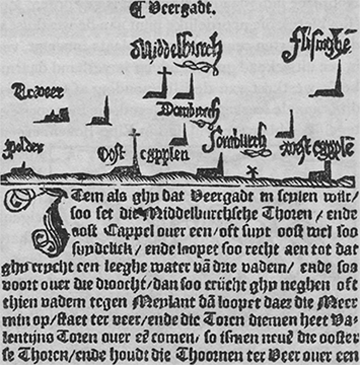 ¶ Veergadt.
Middelburch
Flisinghē
Traveer
Domburch
Polder
Oost capplen
Soutburch
West capplē
Item als ghy dat Veergadt in seylen wilt/
soo set die Middelburchsche Thoren / ende
oost Cappel over een/oft suyt oost wel soo
suydelick/ ende loopet soo recht aen tot dat
ghy crycht een leeghe water vā drie vadem/ ende soo
voort over die droocht/dan soo crücht ghy neghen oft
thien vadem tegen Meylant dā loopet daer die Meer
min op/staet ter veer/ende die Toren diemen heet Va-
lentijns Toren over eē comen/ so ismen neuē die ooster
se Thoren/ende houdt die Thoornen ter Veer over een